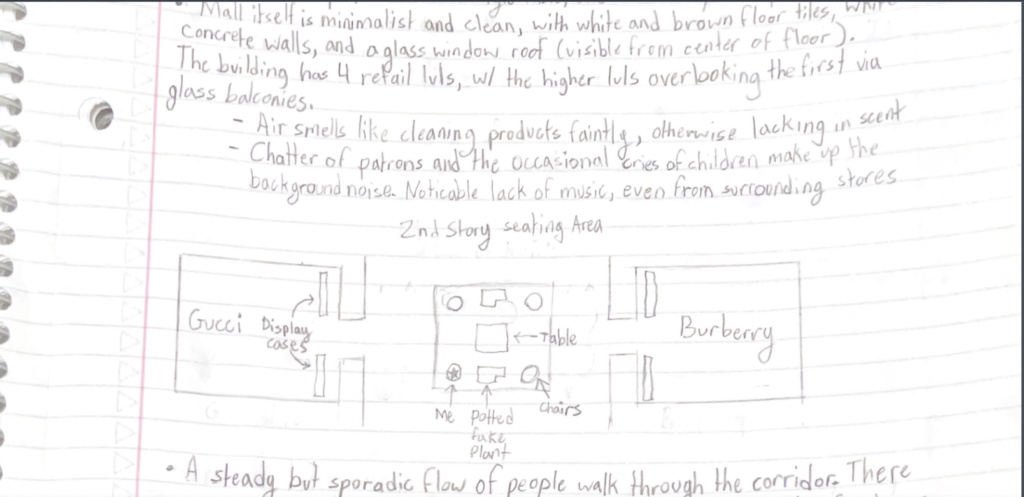 • Mall itself is minimalist and clean, with white and brown floor tiles, white
concrete walls, and a glass window roof (visible from center of floor).
The building has 4 retail lvls, w/ the higher lvls overlooking the first via
glass balconies.
- Air smells like cleaning products faintly, otherwise lacking in scent
- Chatter of patrons and the occasional cries of children make up the
background noise. Noticable lack of music, even from surrounding stores
2nd Story seating Area
Gucci
Display
cases
Table
Burberry
Me
Potted
fake
Plant
Chairs
• A steady but sporadic flow of people walk through the corridor. There